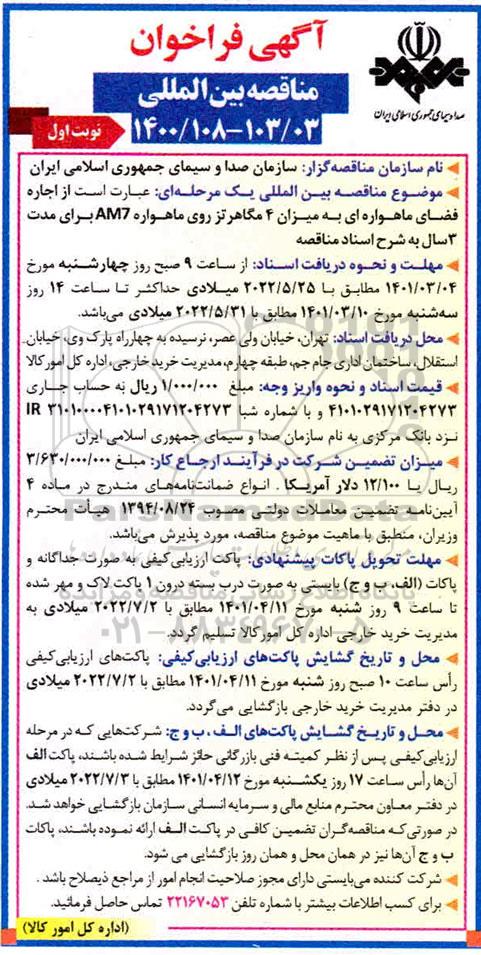 آگهی فراخوان
مناقصه بین المللی
۱۴۰۰/۱۰۸-۱۰۳/۰۳
نوبت اول
صدا و سیمای جمهوری اسلامی ایران
نام سازمان مناقصه‌گزار: سازمان صدا و سیمای جمهوری اسلامی ایران
موضوع مناقصه بین المللی یک مرحله‌ای: عبارت است از اجاره
فضای ماهواره ای به میزان ۴ مگاهرتز روی ماهواره AM7 برای مدت
۳ سال به شرح اسناد مناقصه
مهلت و نحوه دریافت اسناد: از ساعت ۹ صبح روز چهارشنبه مورخ
۱۴۰۱/۰۳/۰۴ مطابق با ۲۰۲۲/۵/۲۵ میلادی حداکثر تا ساعت ۱۴ روز
سه‌شنبه مورخ ۱۴۰۱/۰۳/۱۰ مطابق با ۲۰۲۲/۵/۳۱ میلادی می‌باشد.
محل دریافت اسناد: تهران، خیابان ولی عصر، نرسیده به چهارراه پارک وی، خیابان
استقلال، ساختمان اداری جام جم، طبقه چهارم، مدیریت خرید خارجی، اداره کل امور کالا
قیمت اسناد و نحوه واریز وجه: مبلغ ۱/۰۰۰/۰۰۰ ریال به حساب جاری
۴۱۰۱۰۲۹۱۷۱۲۰۴۲۷۳ و با شماره شبا IR ۳۱۰۱۰۰۰۰۴۱۰۱۰۲۹۱۷۱۲۰۴۲۷۳
نزد بانک مرکزی به نام سازمان صدا و سیمای جمهوری اسلامی ایران
میزان تضمین شرکت در فرآیند ارجاع کار: مبلغ ۳/۶۳۰/۰۰۰/۰۰۰
ریال یا ۱۲/۱۰۰ دلار آمریکا. انواع ضمانت‌نامه‌های مندرج در ماده ۴
آیین‌نامه تضمین معاملات دولتی مصوب ۱۳۹۴/۰۸/۲۴ هیأت محترم
وزیران، منطبق با ماهیت موضوع مناقصه، مورد پذیرش می‌باشد.
مهلت تحویل پاکات پیشنهادی: پاکت ارزیابی کیفی به صورت جداگانه و
پاکات (الف، ب و ج) بایستی به صورت درب بسته درون ۱ پاکت لاک و مهر شده
تا ساعت ۹ روز شنبه مورخ ۱۴۰۱/۰۴/۱۱ مطابق با ۲۰۲۲/۷/۲ میلادی به
مدیریت خرید خارجی اداره کل امور کالا تسلیم گردد.
محل و تاریخ گشایش پاکت‌های ارزیابی‌کیفی: پاکت‌های ارزیابی‌کیفی
رأس ساعت ۱۰ صبح روز شنبه مورخ ۱۴۰۱/۰۴/۱۱ مطابق با ۲۰۲۲/۷/۲ میلادی
در دفتر مدیریت خرید خارجی بازگشایی می‌گردد.
محل و تاریخ گشایش پاکت‌های الف، ب و ج: شرکت‌هایی که در مرحله
ارزیابی‌کیفی پس از نظر کمیته فنی بازرگانی حائز شرایط شده باشند، پاکت الف
آن‌ها رأس ساعت ۱۷ روز یکشنبه مورخ ۱۴۰۱/۰۴/۱۲ مطابق با ۲۰۲۲/۷/۳ میلادی
در دفتر معاون محترم منابع مالی و سرمایه انسانی سازمان بازگشایی خواهد شد.
در صورتی‌که مناقصه‌گران تضمین کافی در پاکت الف ارائه نموده باشند، پاکات
ب و ج آن‌ها نیز در همان محل و همان روز بازگشایی می شود.
شرکت کننده می‌بایستی دارای مجوز صلاحیت انجام امور از مراجع ذیصلاح باشد.
برای کسب اطلاعات بیشتر با شماره تلفن ۲۲۱۶۷۰۵۳ تماس حاصل فرمائید.
(اداره کل امور کالا)
ParsNamadData
۰۲۱-۸۸۳۴۹۶۷۰-۵